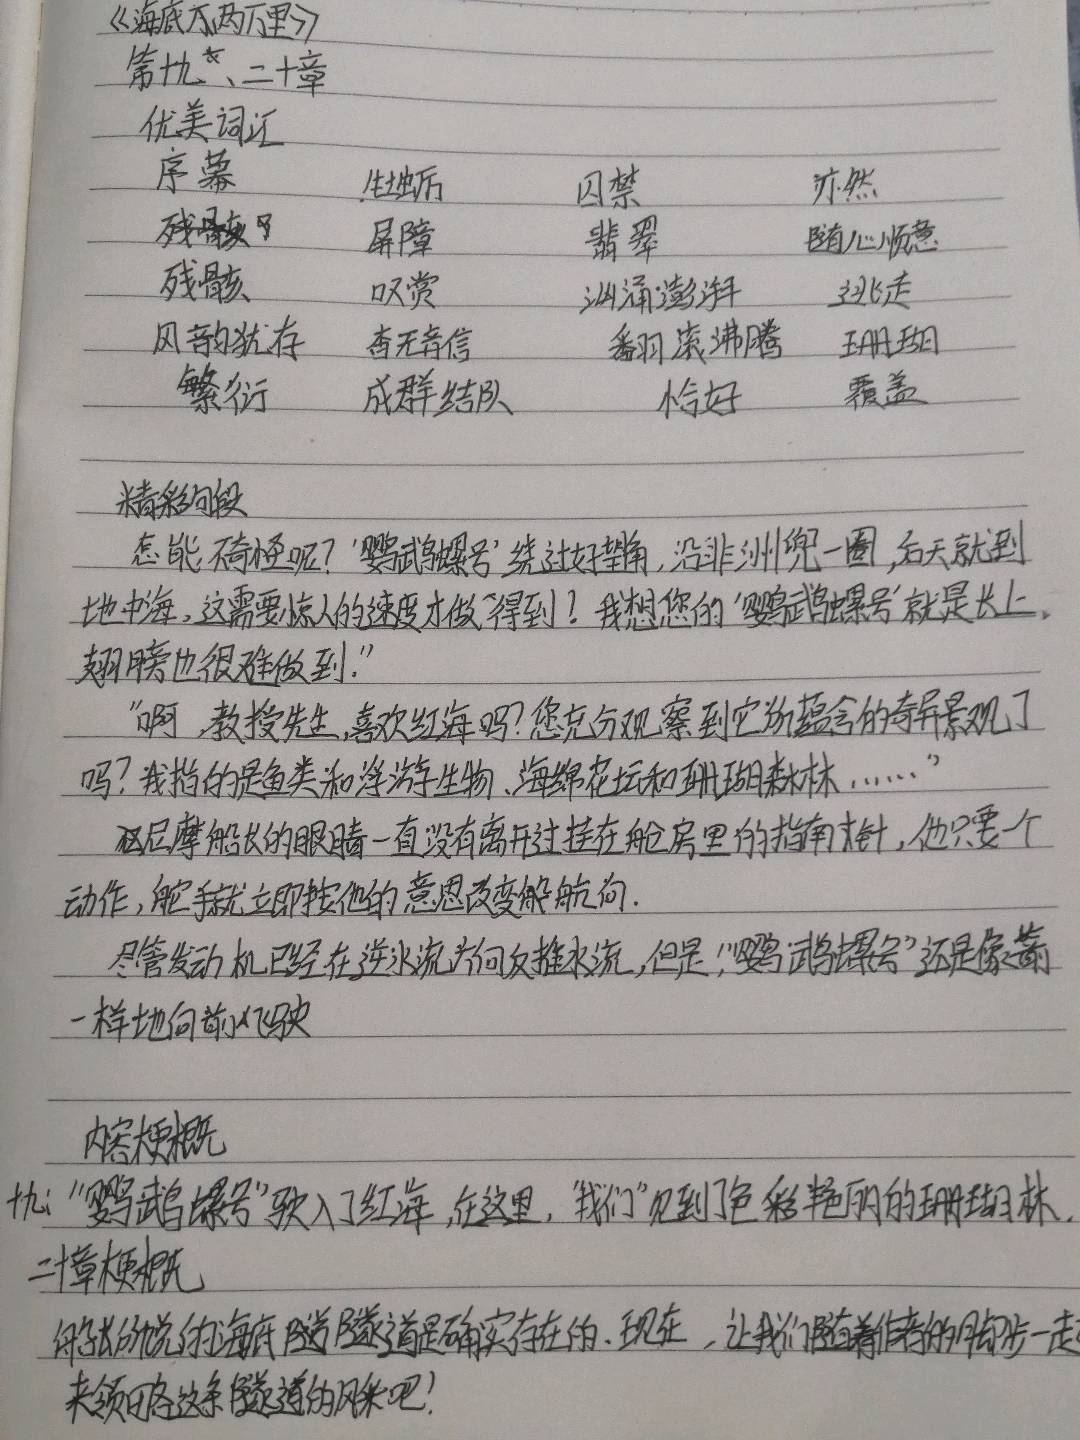 《海底两万里》
第十九、二十章
优美词汇
序幕 牡蛎 囚禁 亦然
残骸 屏障 翡翠 随心顺意
残骸 叹赏 汹涌澎湃 逃走
风韵犹存 杳无音信 翻滚沸腾 珊瑚
繁衍 成群结队 恰好 覆盖
精彩句段
怎能不奇怪呢？‘鹦鹉螺号’绕过好望角，沿非洲兜一圈，后天就到
地中海，这需要惊人的速度才做得到！我想您的‘鹦鹉螺号’就是长上
翅膀也很难做到.”
“啊，教授先生，喜欢红海吗？您充分观察到它所蕴含的奇异景观了
吗？我指的是鱼类和浮游生物、海绵花坛和珊瑚森林……”
尼摩船长的眼睛一直没有离开过挂在舱房里的指南针，他只要一个
动作，舵手就立即按他的意思改变船航向.
尽管发动机已经在逆水流方向反推水流，但是，“鹦鹉螺号”还是像箭
一样地向前飞驶
内容梗概
十九：“鹦鹉螺号”驶入了红海，在这里，“我们”见到了色彩艳丽的珊瑚林.
二十章梗概
船长所说的海底隧道是确实存在的、现在，让我们随着作者的脚步一起
来领略这条隧道的风采吧！